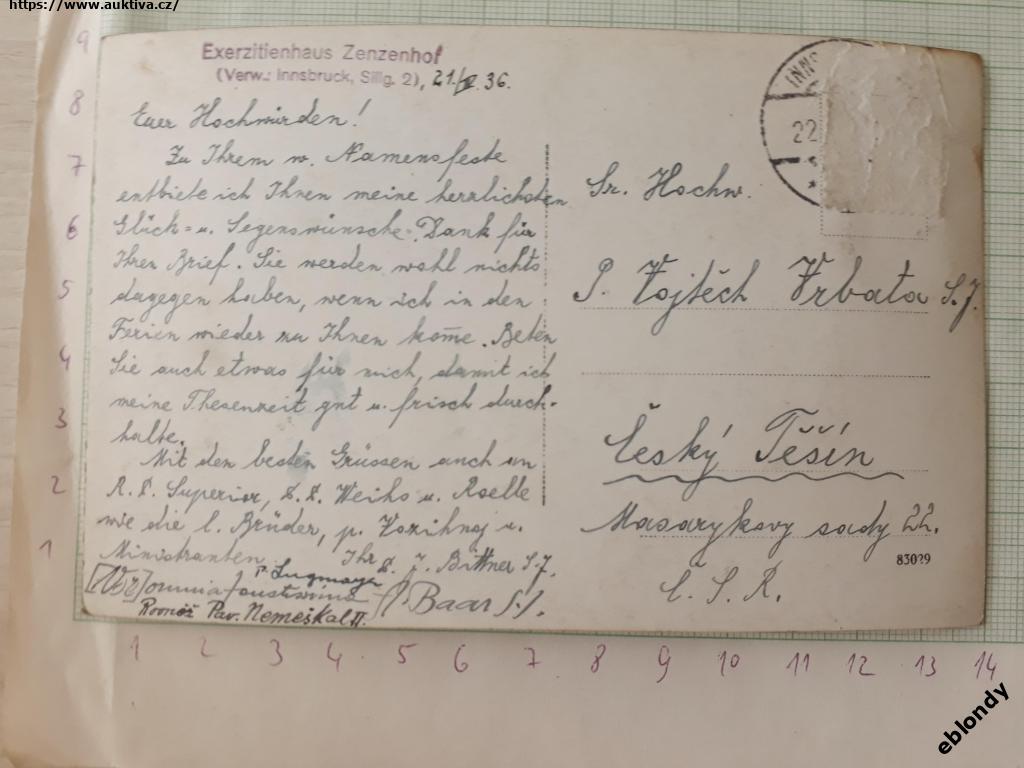 https://www.auktiva.cz/
Exerzitienhaus Zenzenhof
(Verw.: Innsbruck, Sillg. 2), 21/ 36.
Euer Hochwürden!
Zu Ihrem w. Namensfeste
entbiete ich Ihnen meine herzlichsten
Glück= u. Segenswünsche. Dank für
Ihren Brief. Sie werden wohl nichts
dagegen haben, wenn ich in den
Ferien wieder zu Ihnen kom̄e. Beten
Sie auch etwas für mich, damit ich
meine Thesenzeit gut u. frisch durch-
halte.
Mit den besten Grüssen auch an
R. P. Superior, Weihs u. Roselle
wie die l. Brüder, p. u.
Ministranten. Ihr J. Bittner S.J.
omnia faustissima Baar S.J.
Rovněž Pav. Nemeškal
INNS
22
Sr. Hochw.
P. Vojtěch Vrbata S.J.
Český Těšín
Masarykovy sady 22.
Č. S. R.
83029
9
8
7
6
5
4
3
2
1
1 2 3 4 5 6 7 8 9 10 11 12 13 14
eblondy